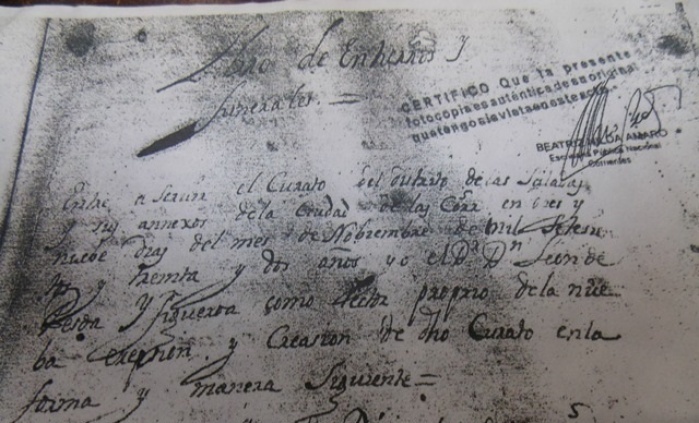 Libro de Entierros y
funerales. =
CERTIFICO Que la presente
fotocopia es auténtica de su original
que tengo a la vista en este acto.
BEATRIZ HILDA AMARO
Escribana Pública Nacional
Corrientes
Entre a servir el Curato del distrito de las Saladas
y sus annexos de la Ciudad de las Corr. en dies y
nuebe dias del mes de Nobiembre de mil setesien
tos y treinta y dos anos yo el Dr. Dn. de
Pesoa y Figueroa como Rector proprio de la nue
ba ereccion y Creasion de dho Curato en la
forma y manera siguiente =